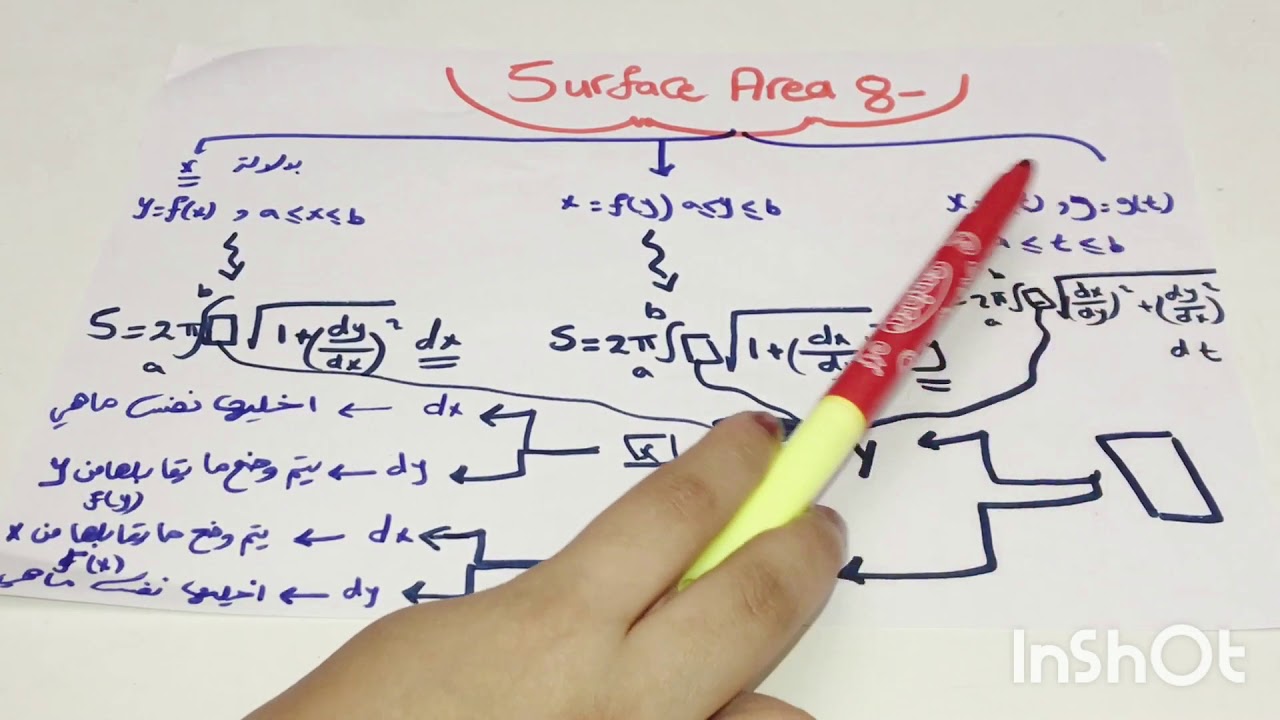 Surface Area 8-
x بدلالة
y=f(x) , a≤x≤b
S=2π∫ₐᵇ□√1+(dy/dx)² dx
x=f(y) a≤y≤b
S=2π∫ₐᵇ□√1+(dx/
, y=g(t)
≤ t ≤ b
2π∫ₐᵇ□√(dx/dy)²+(dy/dx)²
dt
dx ← اخليها نفس ماهي
dy ← يتم وضع ما يقابلها من y
f(y)
dx ← يتم وضع ما يقابلها من x
f(x)
dy ← اخليها نفس ماهي
x
y
InShOt